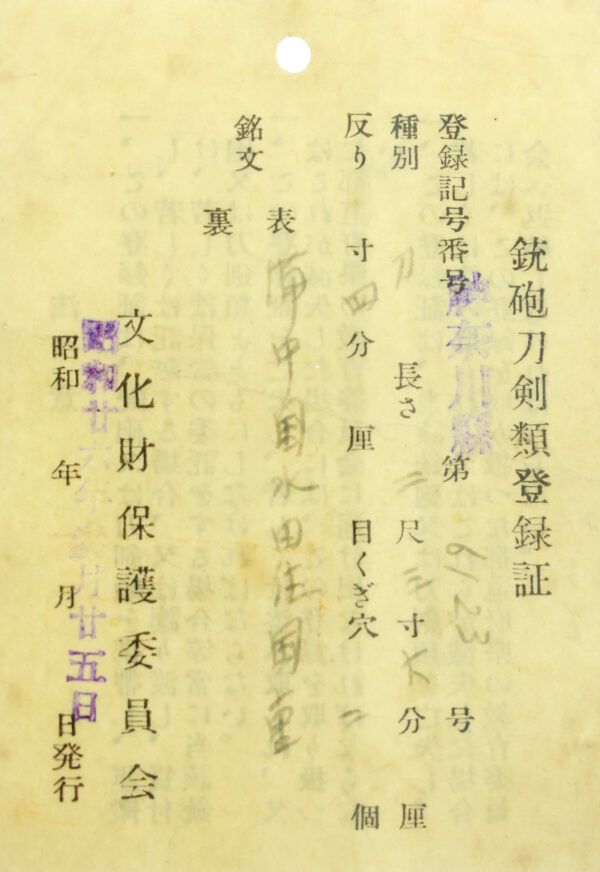 銃砲刀剣類登録証
登録記号番号 神奈川縣 第 6123 号
種別 刀 長さ 二尺三寸六分 厘
反り 寸四分 厘 目くぎ穴 二 個
銘文 表 備中国水田住国重
裏
文化財保護委員会
昭和 年 月 日発行
昭和廿六年 月廿五日